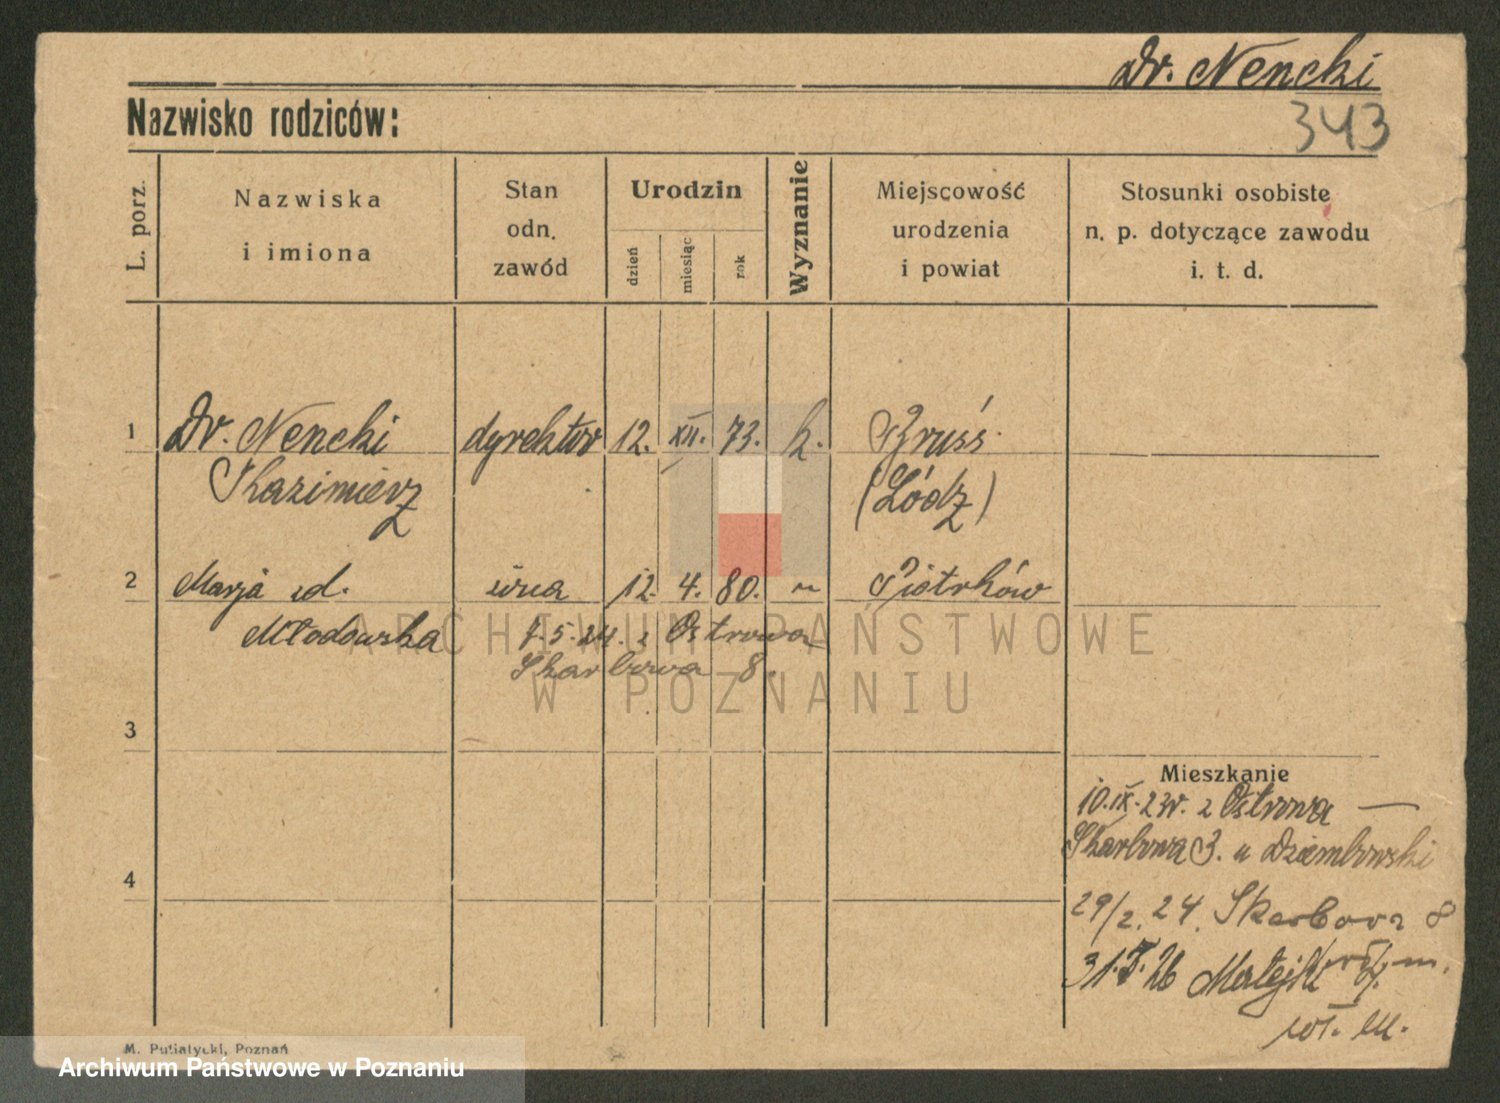 Dr. Nencki
Nazwisko rodziców:
343
L. porz.
Nazwiska
i imiona
Stan
odn.
zawód
Urodzin
dzień
miesiąc
rok
Wyznanie
Miejscowość
urodzenia
i powiat
Stosunki osobiste
n. p. dotyczące zawodu
i. t. d.
1 Dr. Nencki dyrektor 12. XII. 73. k. Bruss
Kazimierz (Łódz)
2 Marja zd. żona 12. 4. 80. " Piotrków
Młodowska 7.5.24. z Ostrowa
Skarbowa 8.
3
Mieszkanie
10.IX.23r. z Ostrowa
Skarbowa 3. u Dziembowski
4
29/2. 24. Skarbowa 8
31.5.26 Matejki m.
wł. M.
M. Putiatycki, Poznań
ARCHIWUM PAŃSTWOWE
W POZNANIU
Archiwum Państwowe w Poznaniu